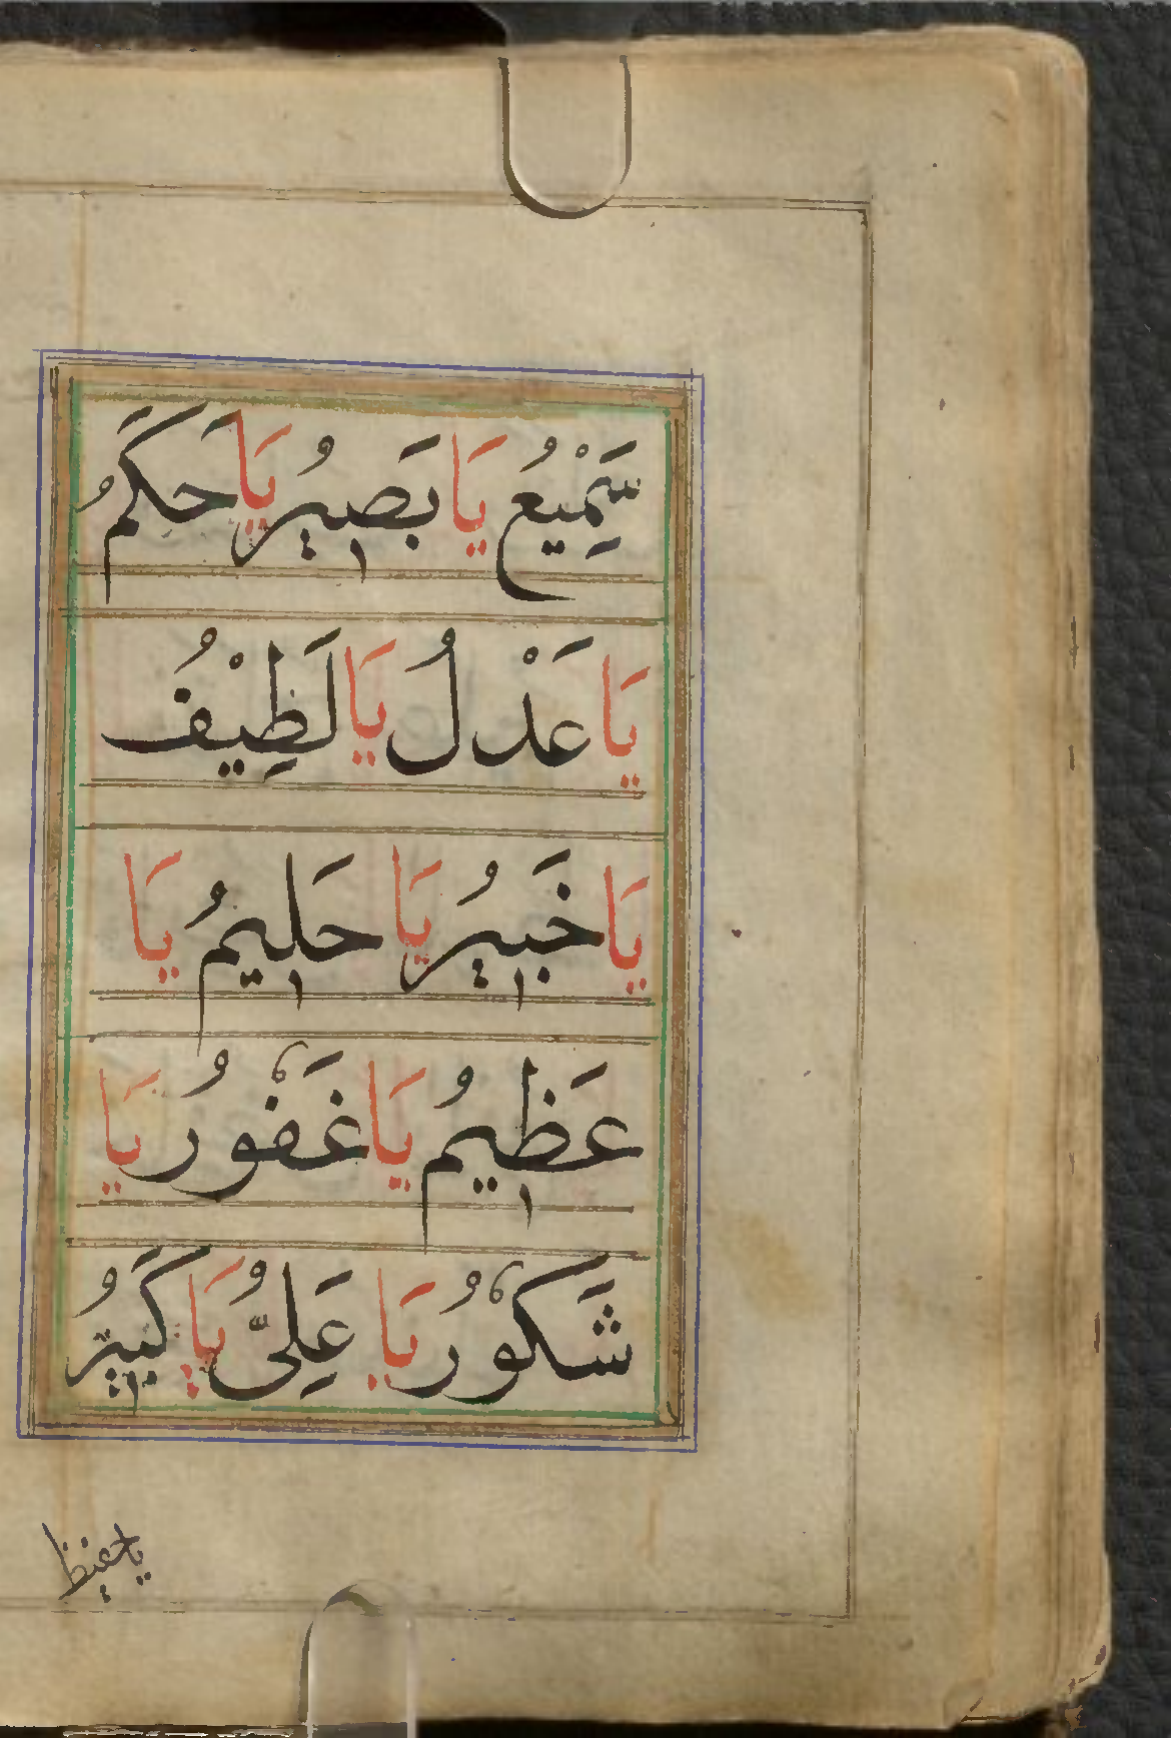 سَمِيْعُ يَا بَصِيرُ يَا حَكَمُ
يَا عَدْلُ يَا لَطِيْفُ
يَا خَبِيرُ يَا حَلِيمُ يَا
عَظِيمُ يَا غَفُورُ يَا
شَكُورُ يَا عَلِيُّ يَا كَبِيرُ
ياحفيظ